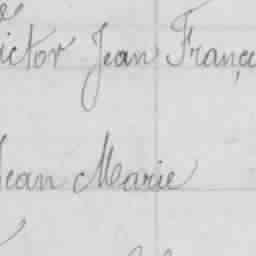 ictor Jean Franç
Jean Marie